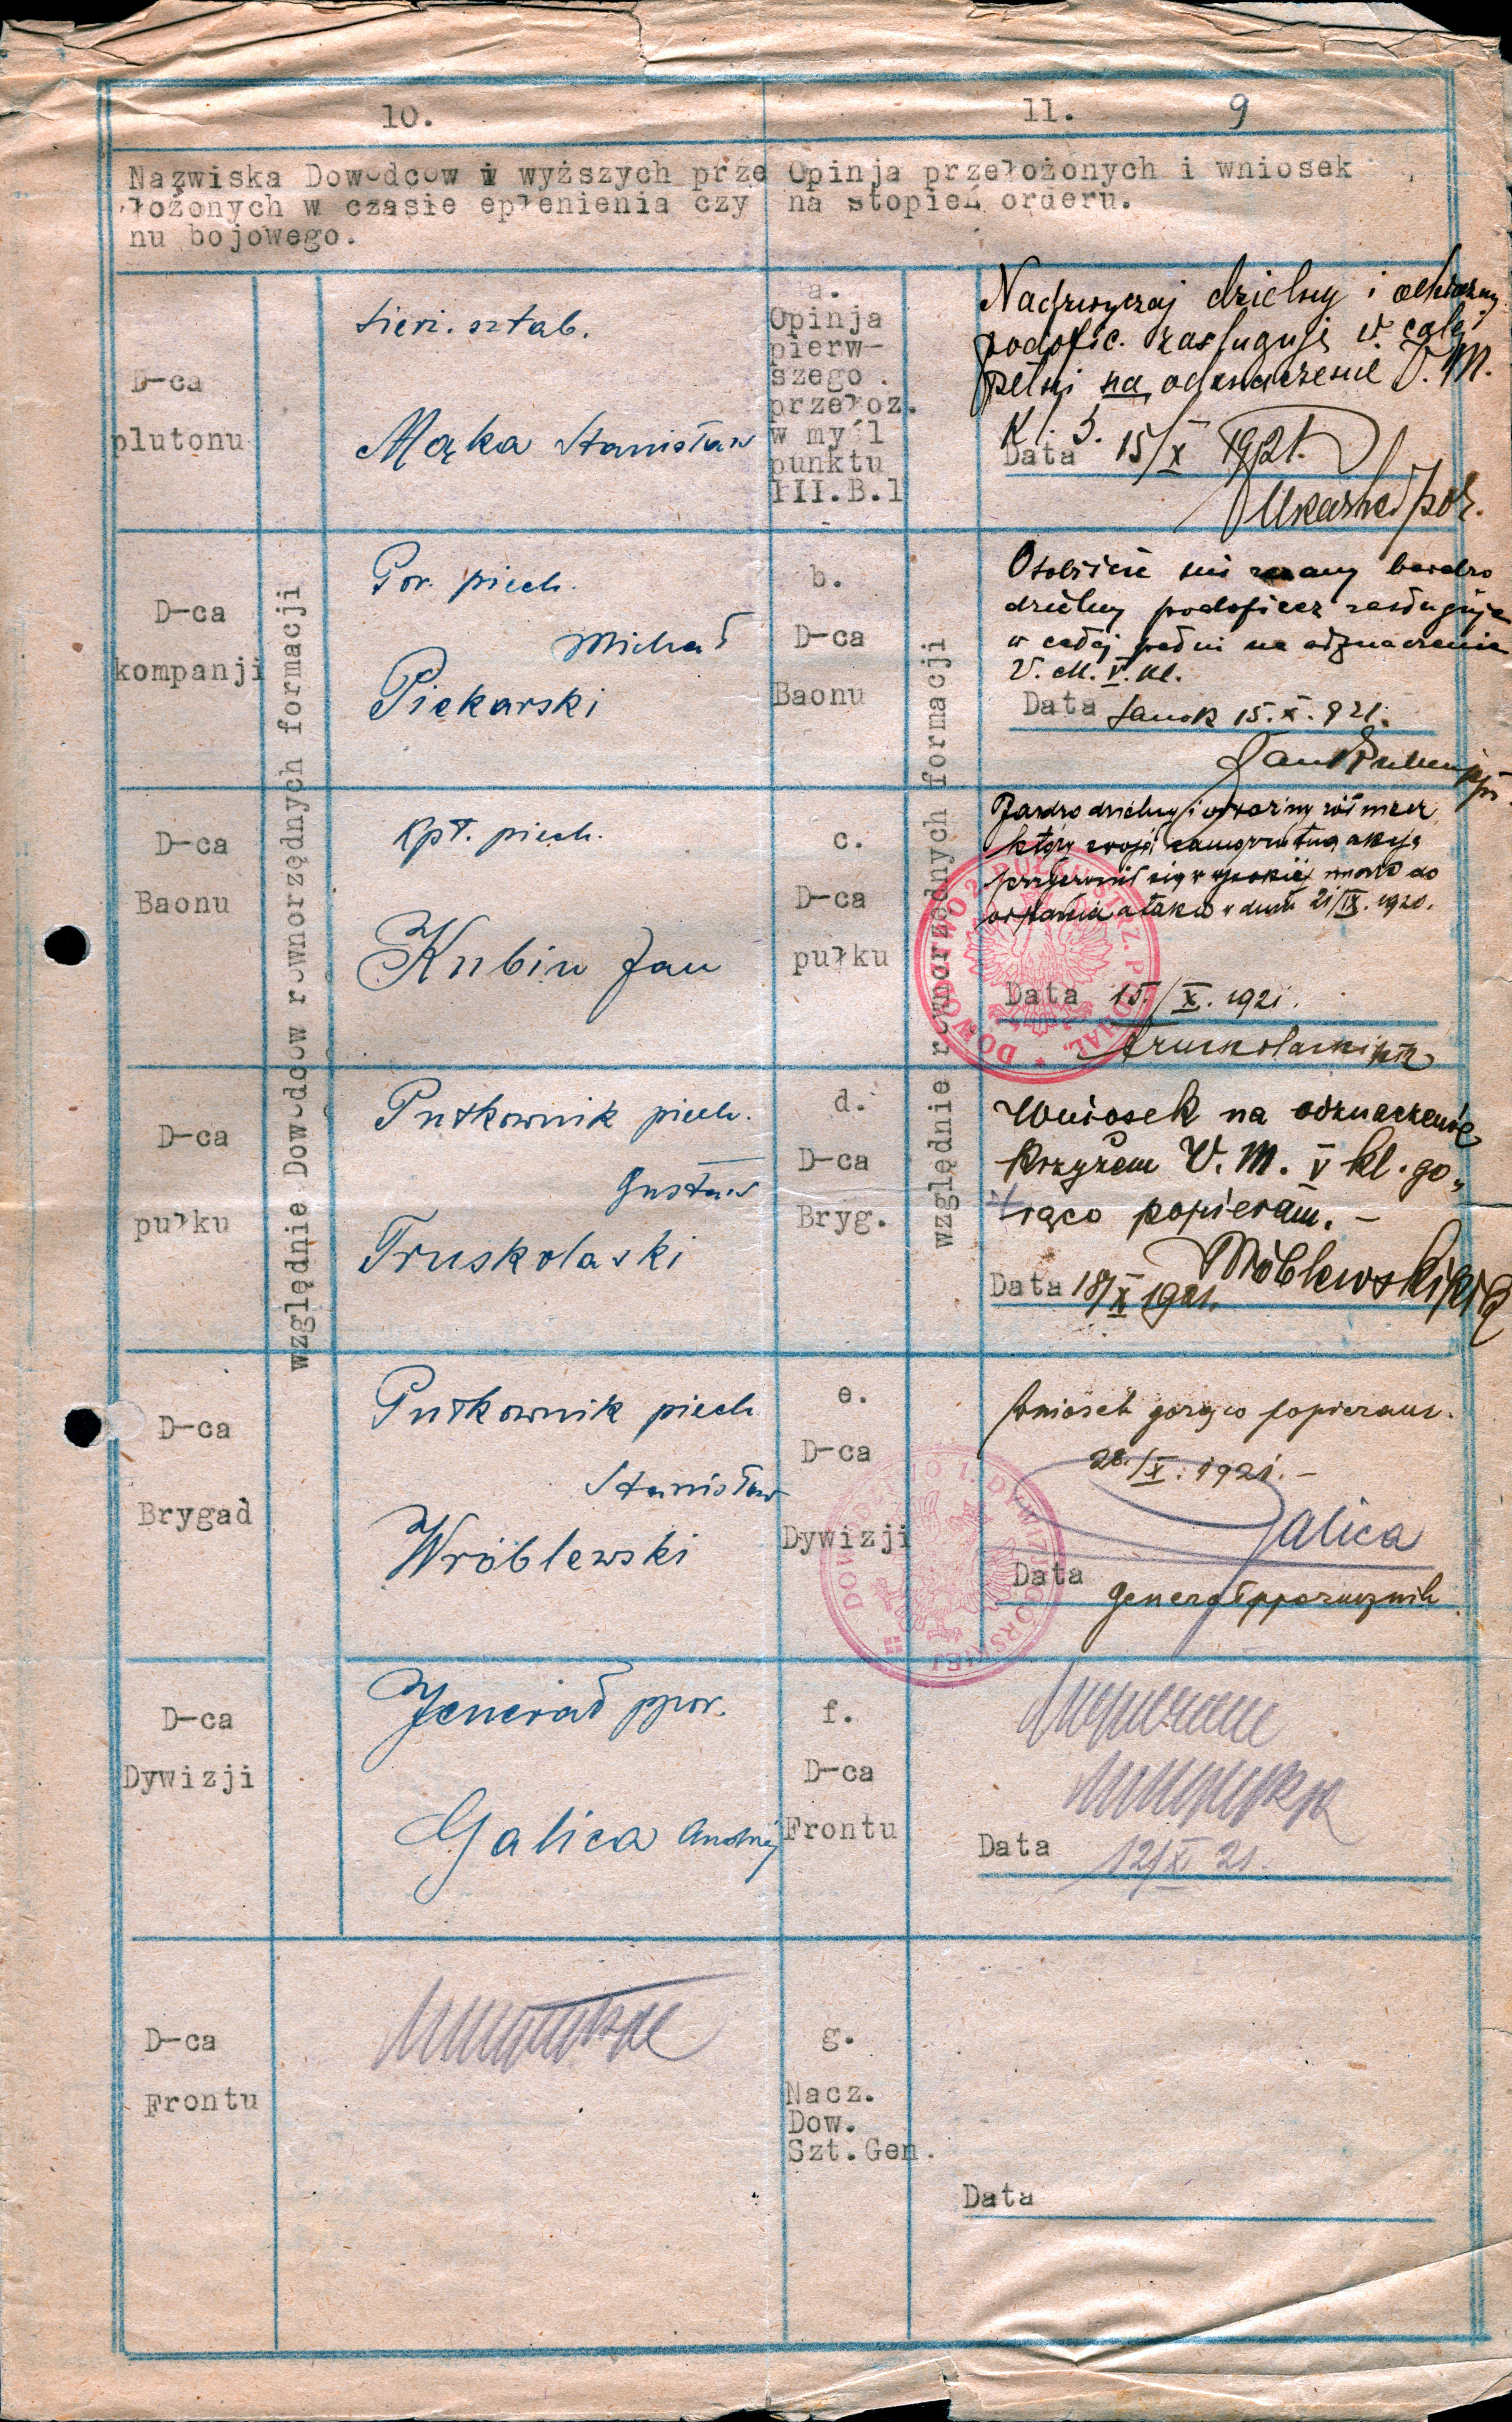 10.
11. 9
Nazwiska Dowodcow i wyższych prze
łożonych w czasie epłenienia czy
nu bojowego.
Opinja przełożonych i wniosek
na stopień orderu.
D-ca
plutonu
sierż. sztab.
Mąka Stanisław
a.
Opinja
pierw-
szego
przełoż.
w myśl
punktu
III.B.1
Nadzwyczaj dzielny i odważny
podofic. zasługuje w całej
pełni na odznaczenie V. M.
Kl. 5.
Data 15/X 1921.
por.
względnie Dowodcow rownorzędnych formacji
D-ca
kompanji
Por. piech.
Michał
Piekarski
b.
D-ca
Baonu
względnie rownorzędnych formacji
Osobiście mi znany bardzo
dzielny podoficer zasługuje
w całej pełni na odznaczenie
V. M. V. kl.
Data Sanok 15.X.921.
D-ca
Baonu
Kpt. piech.
Kubin Jan
c.
D-ca
pułku
Bardzo dzielny i odważny żołnierz
który swoją samorzutną akcją
przyczynił się w wysokiej mierze do
ataku w dniu 21/IX. 1920.
Data 15./X. 1921.
Truskolaski płk
D-ca
pułku
Pułkownik piech.
Gustaw
Truskolaski
d.
D-ca
Bryg.
Wniosek na odznaczenie
krzyżem V. M. V kl. go„
rąco popieram. –
Data 18/X 1921.
Wróblewski płk
D-ca
Brygad
Pułkownik piech
Stanisław
Wróblewski
e.
D-ca
Dywizji
Wniosek gorąco popieram.
28./X. 1921. –
Galica
Data
Generał pporucznik
D-ca
Dywizji
Jenerał ppor.
Galica Andrzej
f.
D-ca
Frontu
Data 12/XI 21.
D-ca
Frontu
g.
Nacz.
Dow.
Szt.Gen.
Data